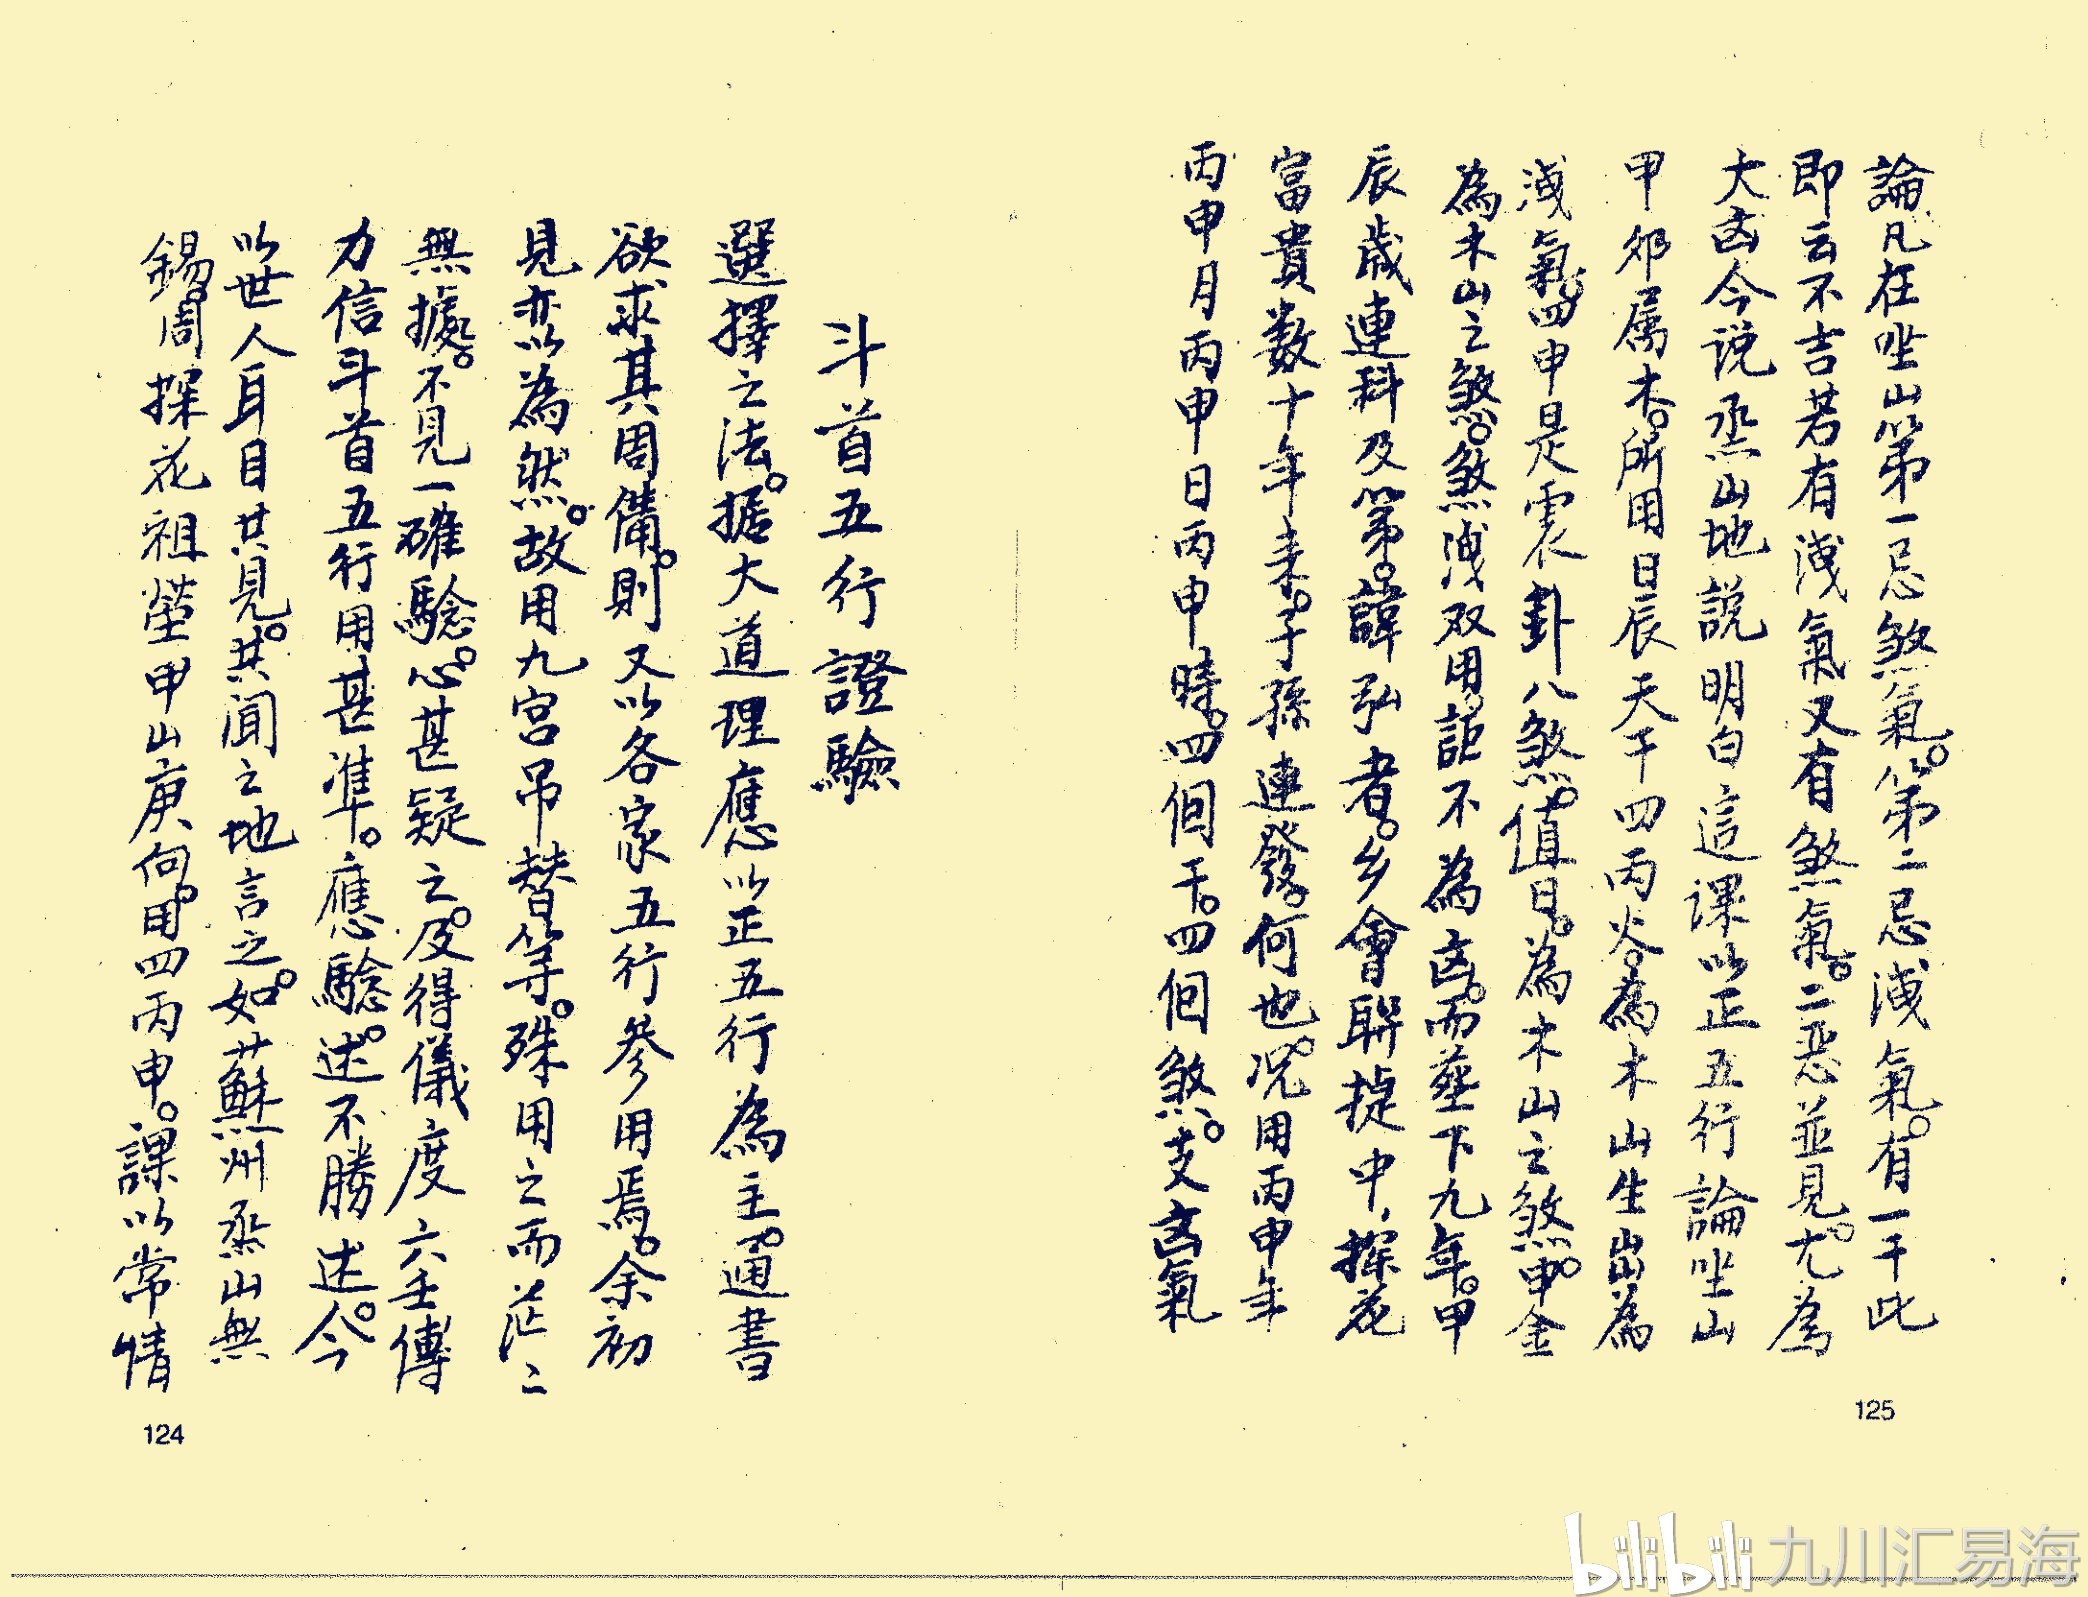 斗首五行證驗
選擇之法。据大道理應以正五行為主。通書
欲求其周備。則又以各家五行參用焉。余初
見亦以為然。故用九宮吊替等。殊用之而茫〻
無據處。不見一確驗。心甚疑之。及得儀度六壬傳
力信斗首五行用甚準。應驗。述不勝述。今
以世人耳目共見。共聞之地言之。如蘇州烝山無
錫。周探花祖塋甲山庚向。用四丙申。課以常情
124
論凡在坐山第一忌煞氣。第二忌洩氣。有一于此
即云不吉若有洩氣又有煞氣。二惡並見。尤為
大凶今说烝山地説明白這課以正五行論坐山
甲夘属木。所用日辰天干四丙火。為木山生出為
洩氣。四申是震卦八煞。值日。為木山之煞。申金
為木山之煞。煞洩双用。詎不為凶。而塟下九年。甲
辰歲連科及第。諱弘者。乡會聯捷中,探花
富貴数十年来。子孫連發。何也。况用丙申年
丙申月丙申日丙申時。四個干。四個煞。支凶氣
125
bilibili 九川汇易海